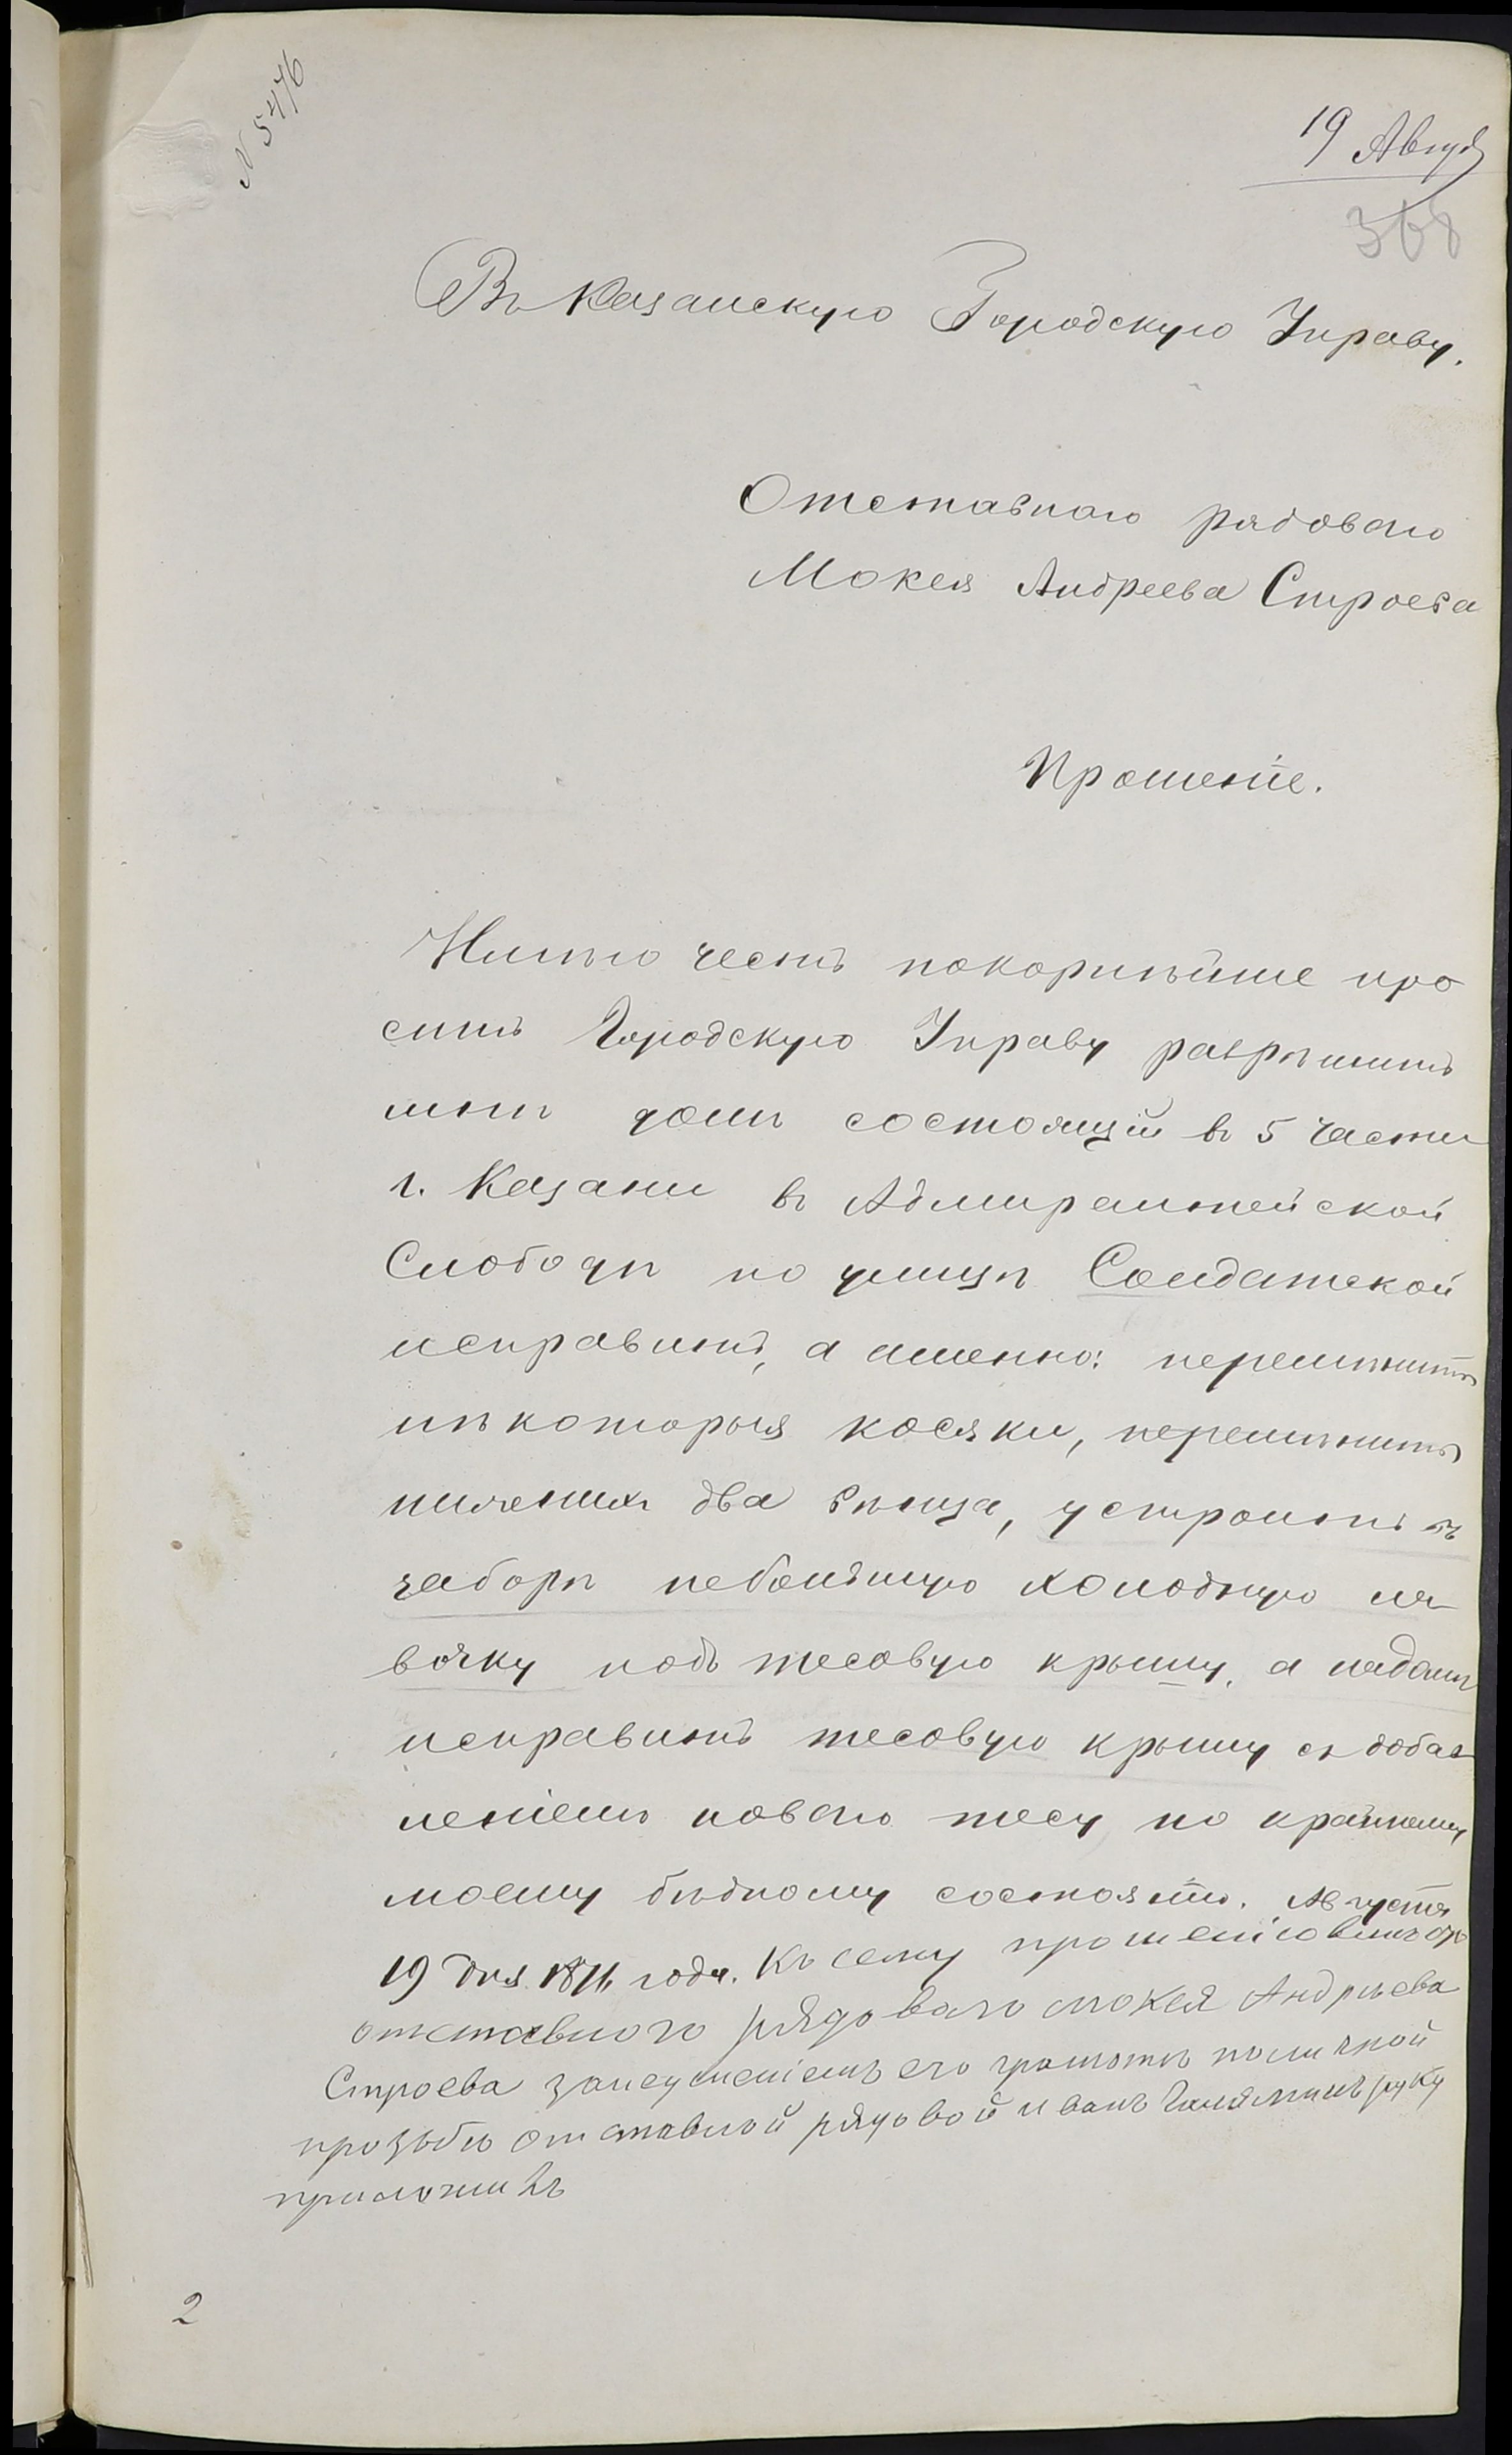 N 5476
19 Август
368
Въ Казанскую Городскую Управу.
Отставнаго рядоваго
Мокея Андреева Строева
Прошеніе.
Имѣю честь покорнѣйше про
сить Городскую Управу разрѣшить
мнѣ домъ состоящій въ 5 части
г. Казани въ Адмиралтейской
Слободѣ по улицѣ Солдатской
исправить, а именно: перемѣнить
нѣкоторыя косяки, перемѣнить
нижнихъ два вѣнца, устроить въ
заборѣ небольшую холодную ла
вочку подъ тесовую крышу, а на домѣ
исправить тесовую крышу съ добав
леніемъ новаго тесу по крайнему
моему бѣдному состоянію. Августа
19 дня 1876 года. Къ сему прошенію вместо
отставного рядоваго мокея Андрѣева
Строева занеуменіемъ его грамотѣ поличной
прозьбѣ отставной рядовой иванъ руку
приложилъ
2